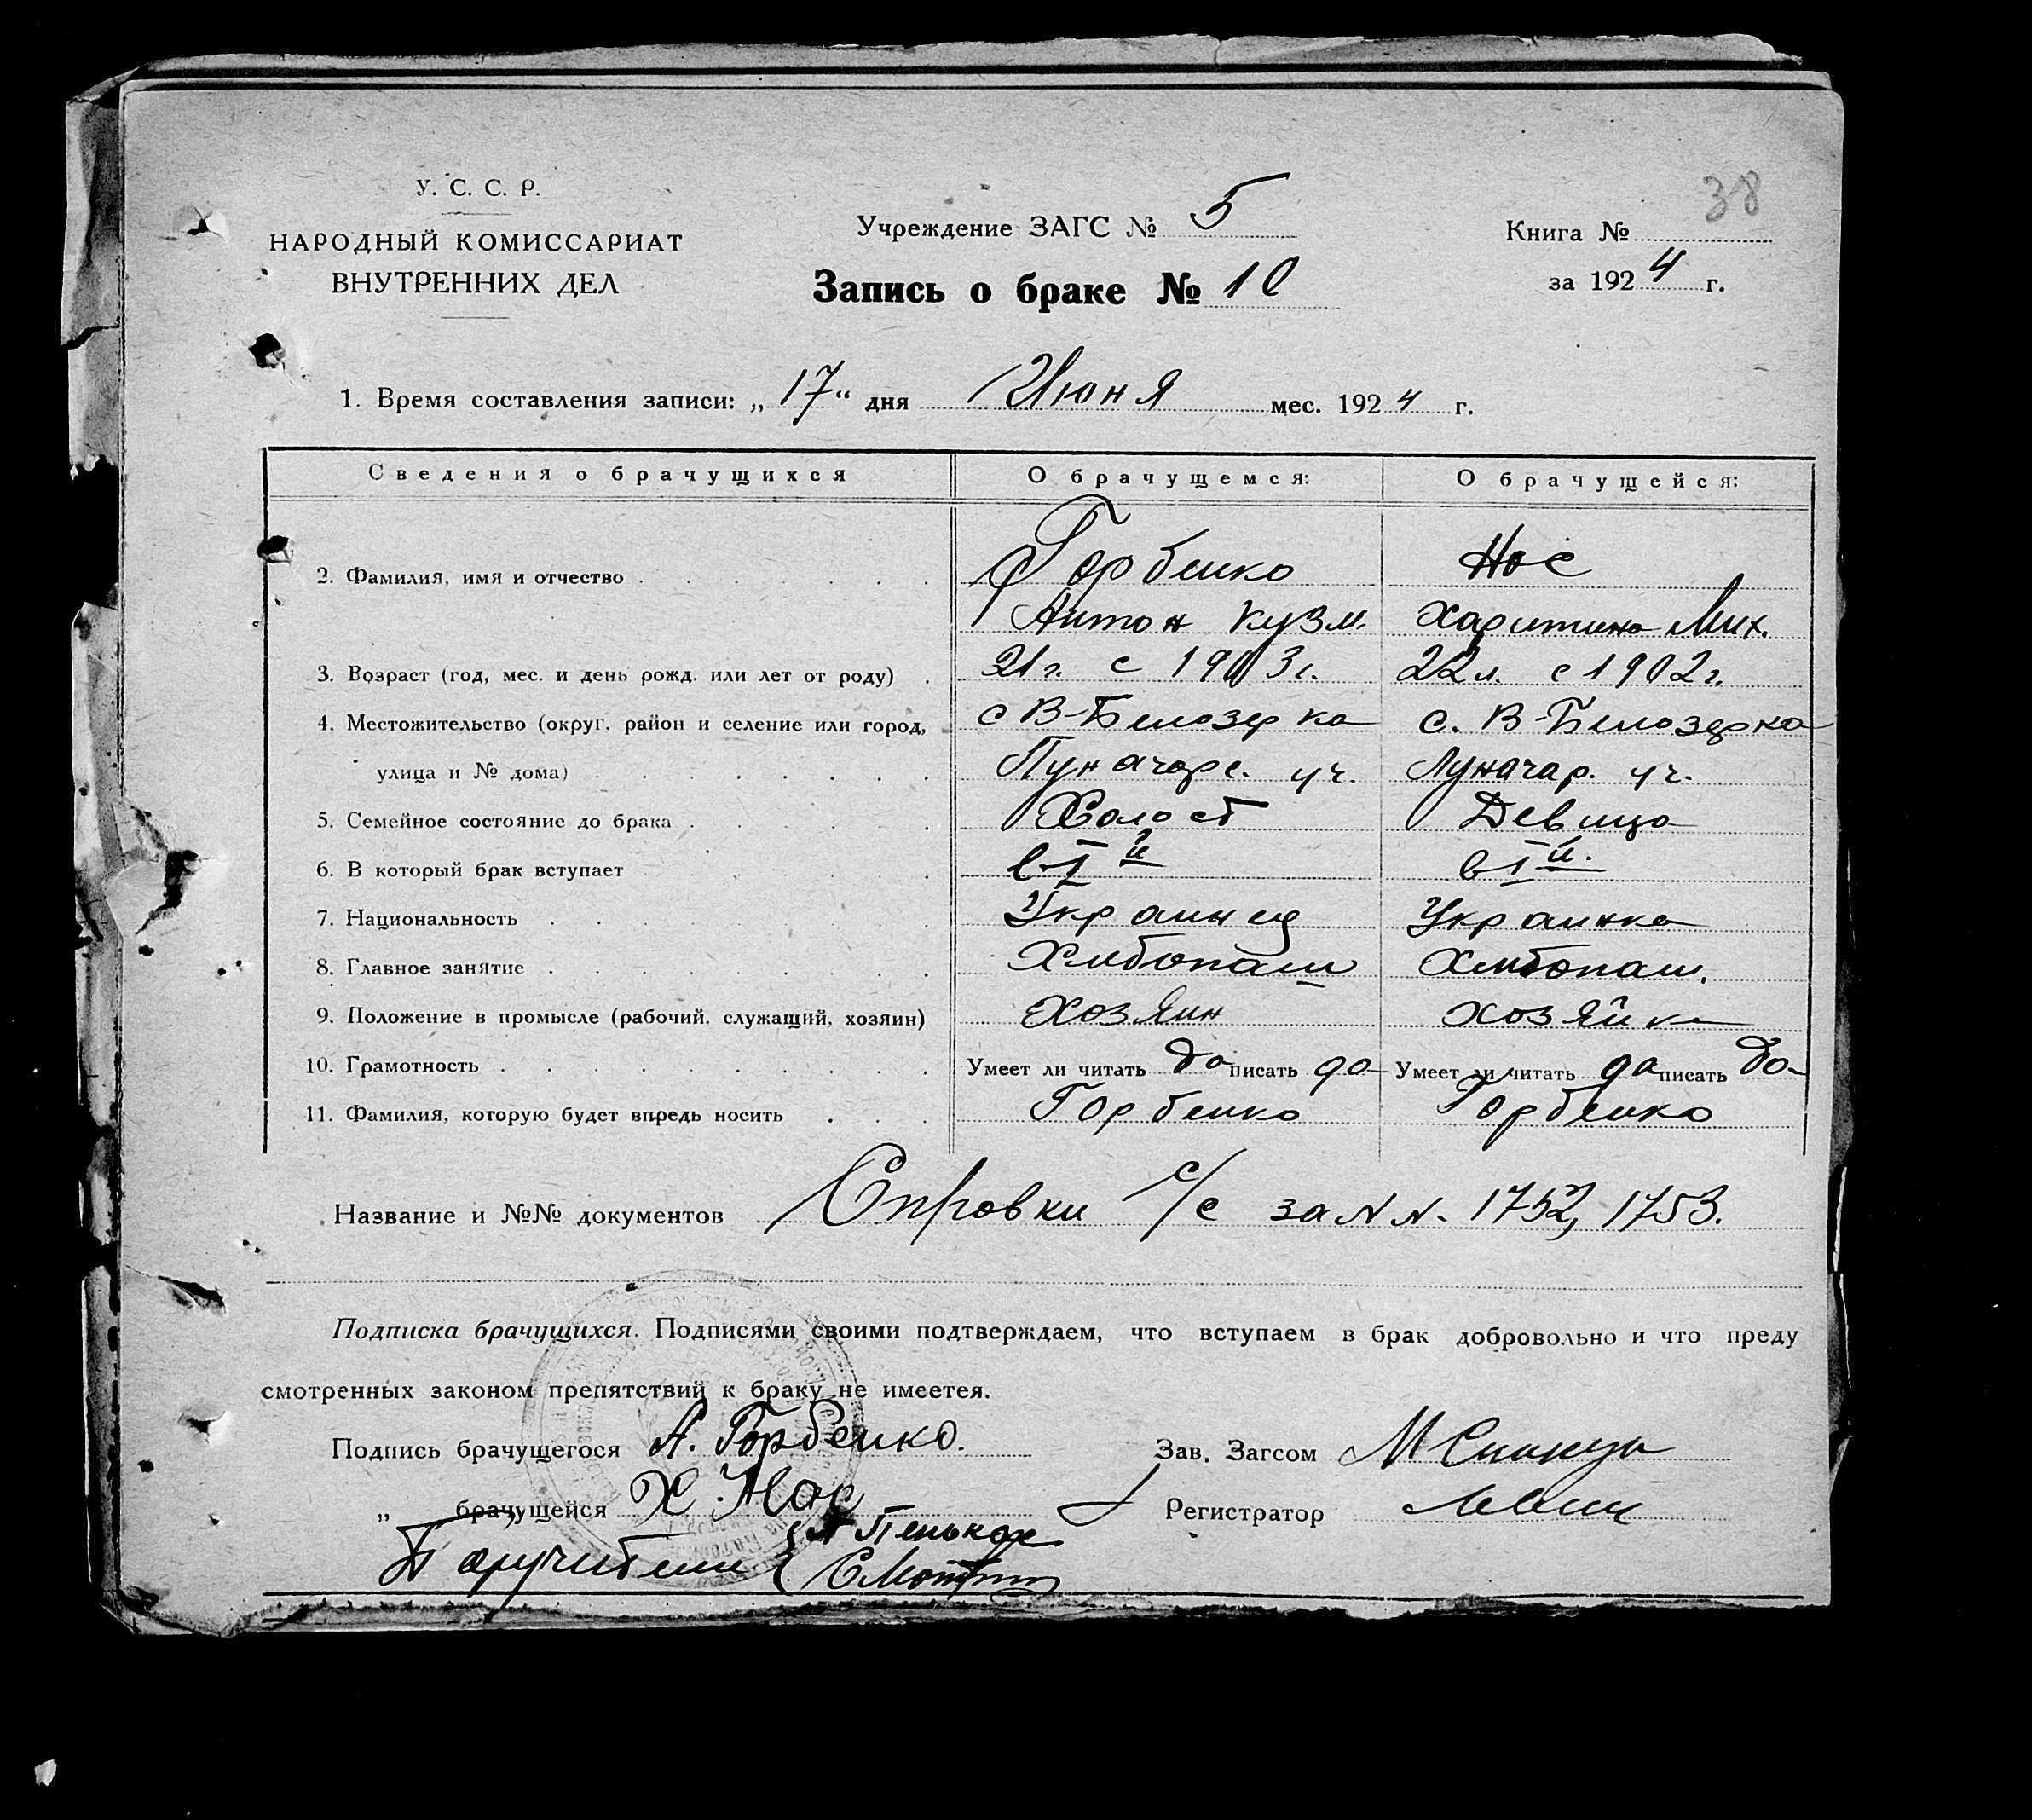 38
У. С. С. Р.
НАРОДНЫЙ КОМИССАРИАТ
ВНУТРЕННИХ ДЕЛ
Учреждение ЗАГС № 5
Книга №
Запись о браке № 10
за 1924 г.
1. Время составления записи: „17“ дня Июня мес. 1924 г.
Сведения о брачущихся О брачущемся: О брачущейся:
2. Фамилия, имя и отчество Горбенко Нос
Антон Кузм. Харитина Мих.
3. Возраст (год, мес. и день рожд. или лет от роду) 21 г. с 1903 г. 22 л. с 1902 г.
4. Местожительство (округ, район и селение или город, с В-Белозерка с. В-Белозерка
улица и № дома) Луначарс. уч. Луначар. уч.
5. Семейное состояние до брака Холост Девица
6. В который брак вступает в I й в I й.
7. Национальность Украинец Украинка
8. Главное занятие Хлебопаш Хлебопаш.
9. Положение в промысле (рабочий, служащий, хозяин) Хозяин хозяйка
10. Грамотность Умеет ли читать да писать да Умеет ли читать да писать да
11. Фамилия, которую будет впредь носить Горбенко Горбенко
Название и №№ документов Справки с/с за N N. 1752, 1753.
Подписка брачущихся. Подписями своими подтверждаем, что вступаем в брак добровольно и что преду
смотренных законом препятствий к браку не имеетея.
Подпись брачущегося А. Горбенко. Зав. Загсом
„ брачущейся Х. Нос Регистратор